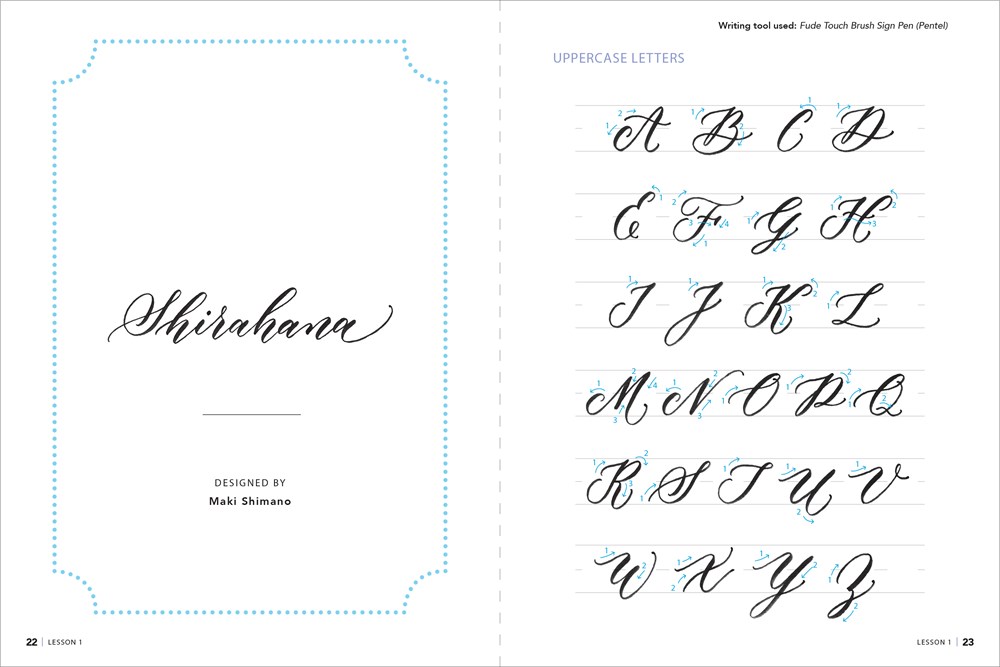 Shirahana
DESIGNED BY
Maki Shimano
22 | LESSON 1
Writing tool used: Fude Touch Brush Sign Pen (Pentel)
UPPERCASE LETTERS
A B C D
E F G H
I J K L
M N O P Q
R S T U V
W X Y Z
LESSON 1 | 23